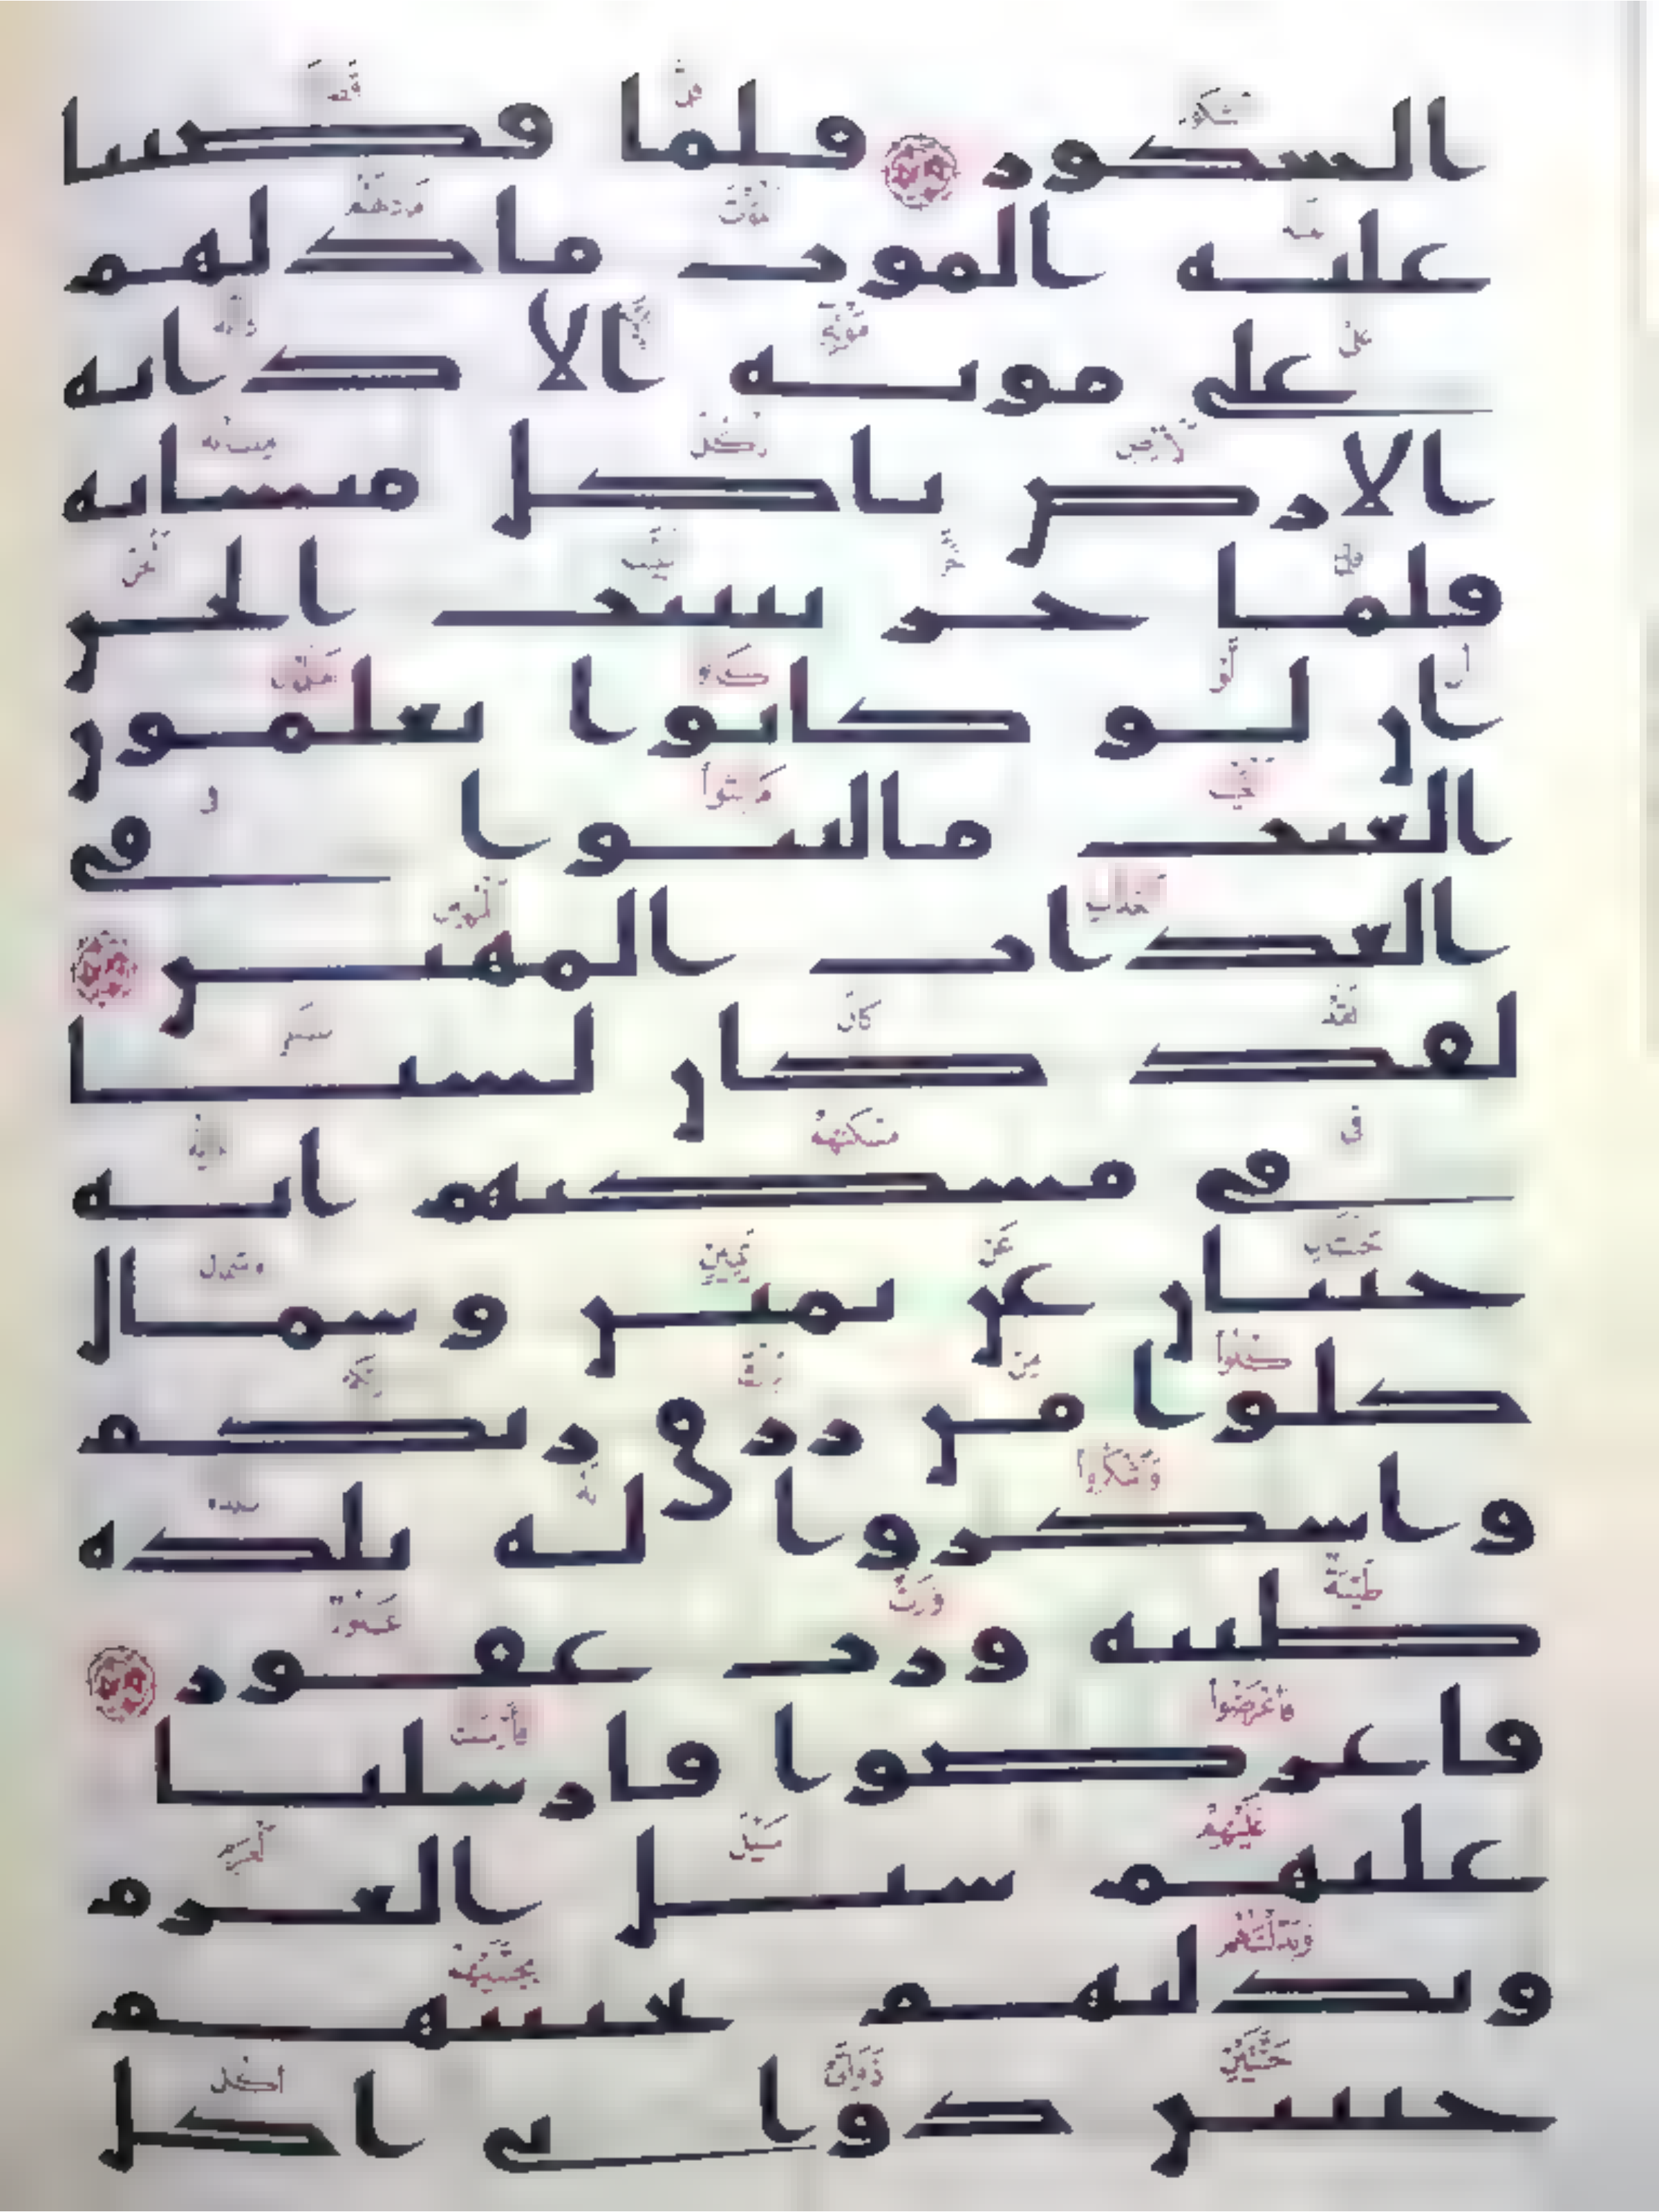 الشكور فلما قضينا
عليه الموت ما دلهم
على موته الا دابه
الارض تاكل منساته
فلما خر تبينت الجن
ان لو كانوا يعلمون
الغيب ما لبثوا في
العذاب المهين
لقد كان لسبا
في مسكنهم ايه
جنتان عن يمين وشمال
كلوا من رزق ربكم
واشكروا له بلده
طيبه ورب غفور
فاعرضوا فارسلنا
عليهم سيل العرم
وبدلنهم بجنتيهم
جنتين ذواتى اكل